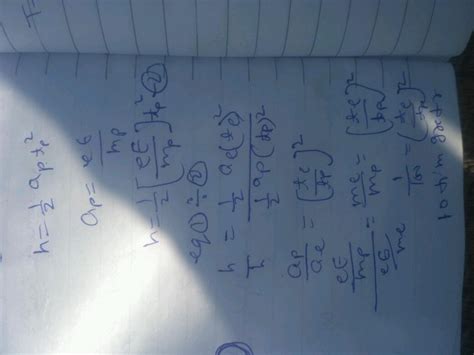 h = ½ aₚ tₚ²
aₚ = eE/mₚ
h = ½ [eE/mₚ] tₚ² – ②
eq ① ÷ ②
h/h = ½ aₑ(tₑ)² / ½ aₚ(tₚ)²
aₚ/aₑ = (tₑ/tₚ)²
(eE/mₚ)/(eE/mₑ) = mₑ/mₚ = (tₑ/tₚ)²
1/100 = (tₑ/tₚ)²
10 tim